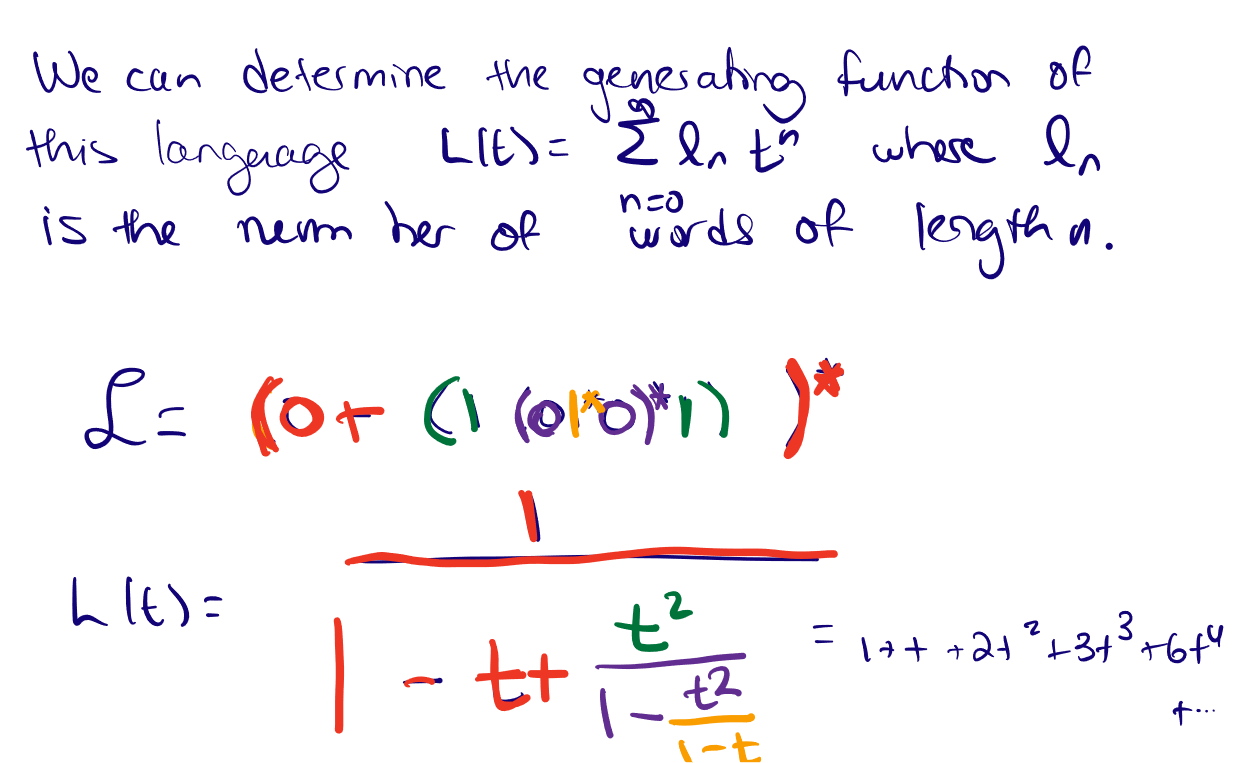 We can determine the generating function of
this language L(t) = \sum_{n=0}^{\infty} l_n t^n where l_n
is the num ber of words of length n.
ℒ = (0 + (1 (01*0)*1) )*
L(t) = \frac{1}{1 - t + \frac{t^2}{1 - \frac{t^2}{1-t}}} = 1 + t + 2t^2 + 3t^3 + 6t^4
+ ...